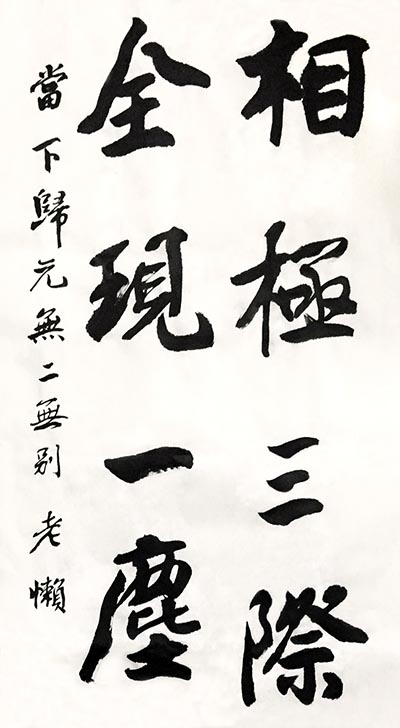 相極三際
全現一塵
當下歸元無二無別 老懶